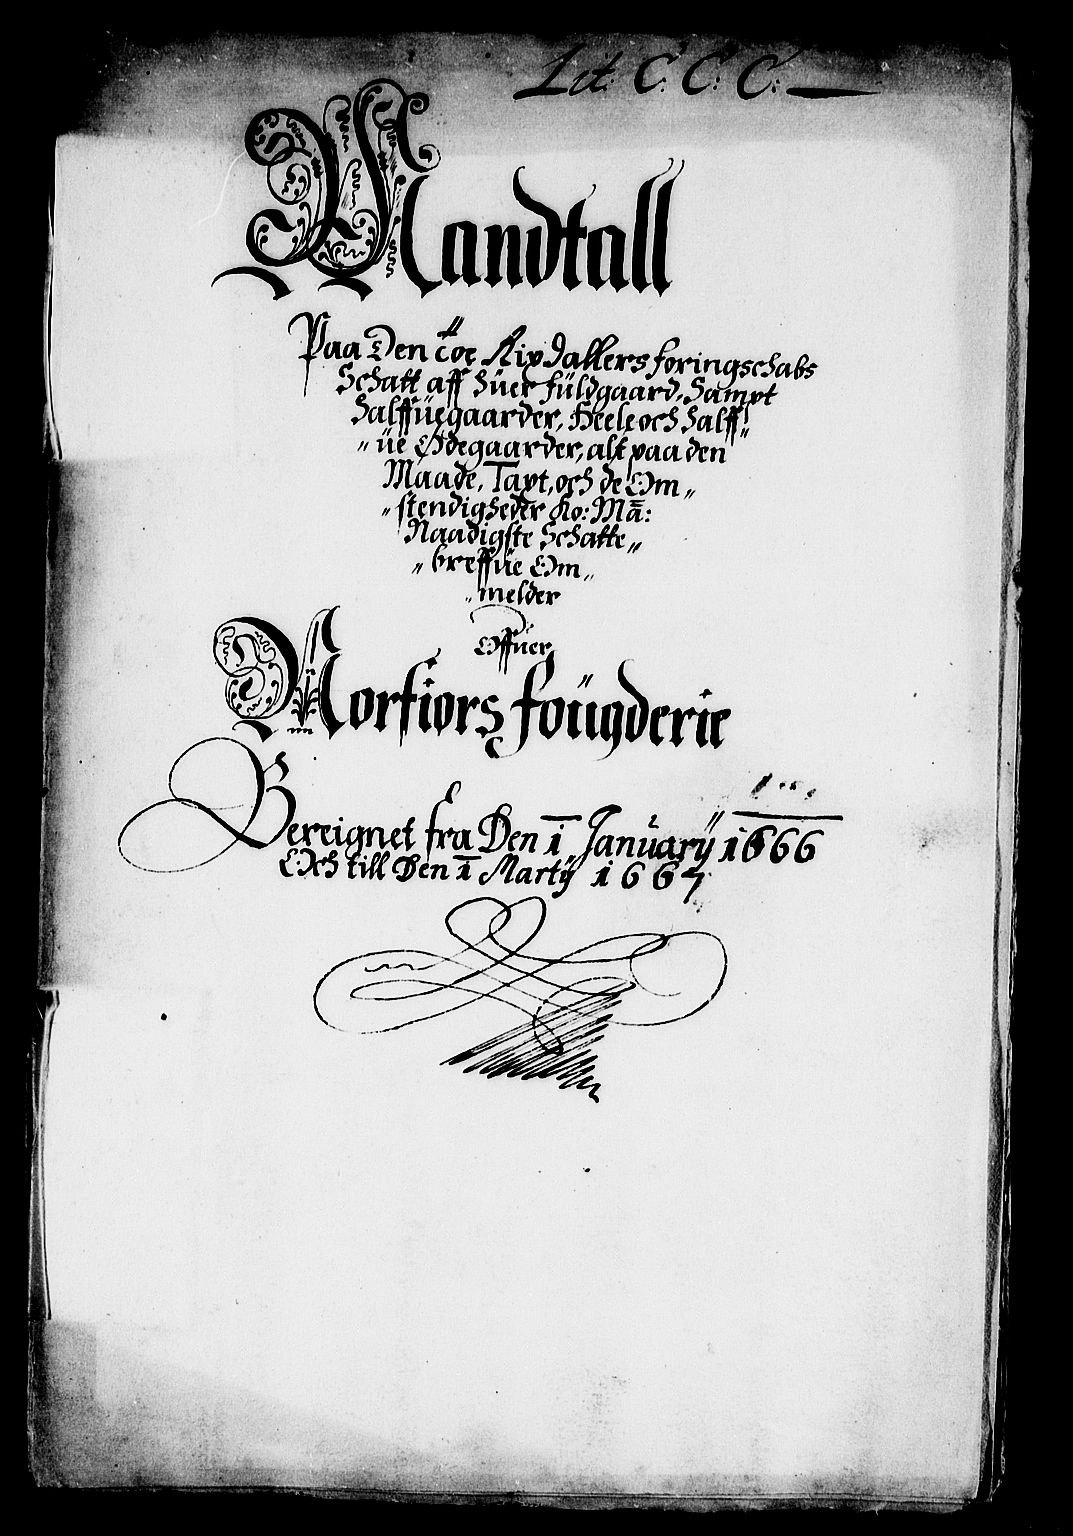 Lit. C: C: C:
Mandtall
Paa Den Rixdallers foringschabs
Schatt aff huer füldgaard, Sampt
halffüegaarder, Heele och halff„
„üe Ødegaarder, alt paa den
Maade, Taxt, och de Om„
„stendigheder Ko: Ma:
Naadigste Schatte„
„breffüe Om„
„melder
Offuer
Norfiors foügderie
Bereignet fra Den 1 January 1666
Och till Den 1 Marty 1667